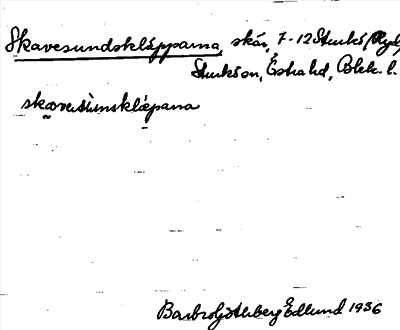 Skavesundskläpparna, skär, 7-12 Sturkö (Ryd,
Sturkö sn, Östra hd, Blek. l.
skavesùnsklɑ̈pana
Barbro Edlund 1936